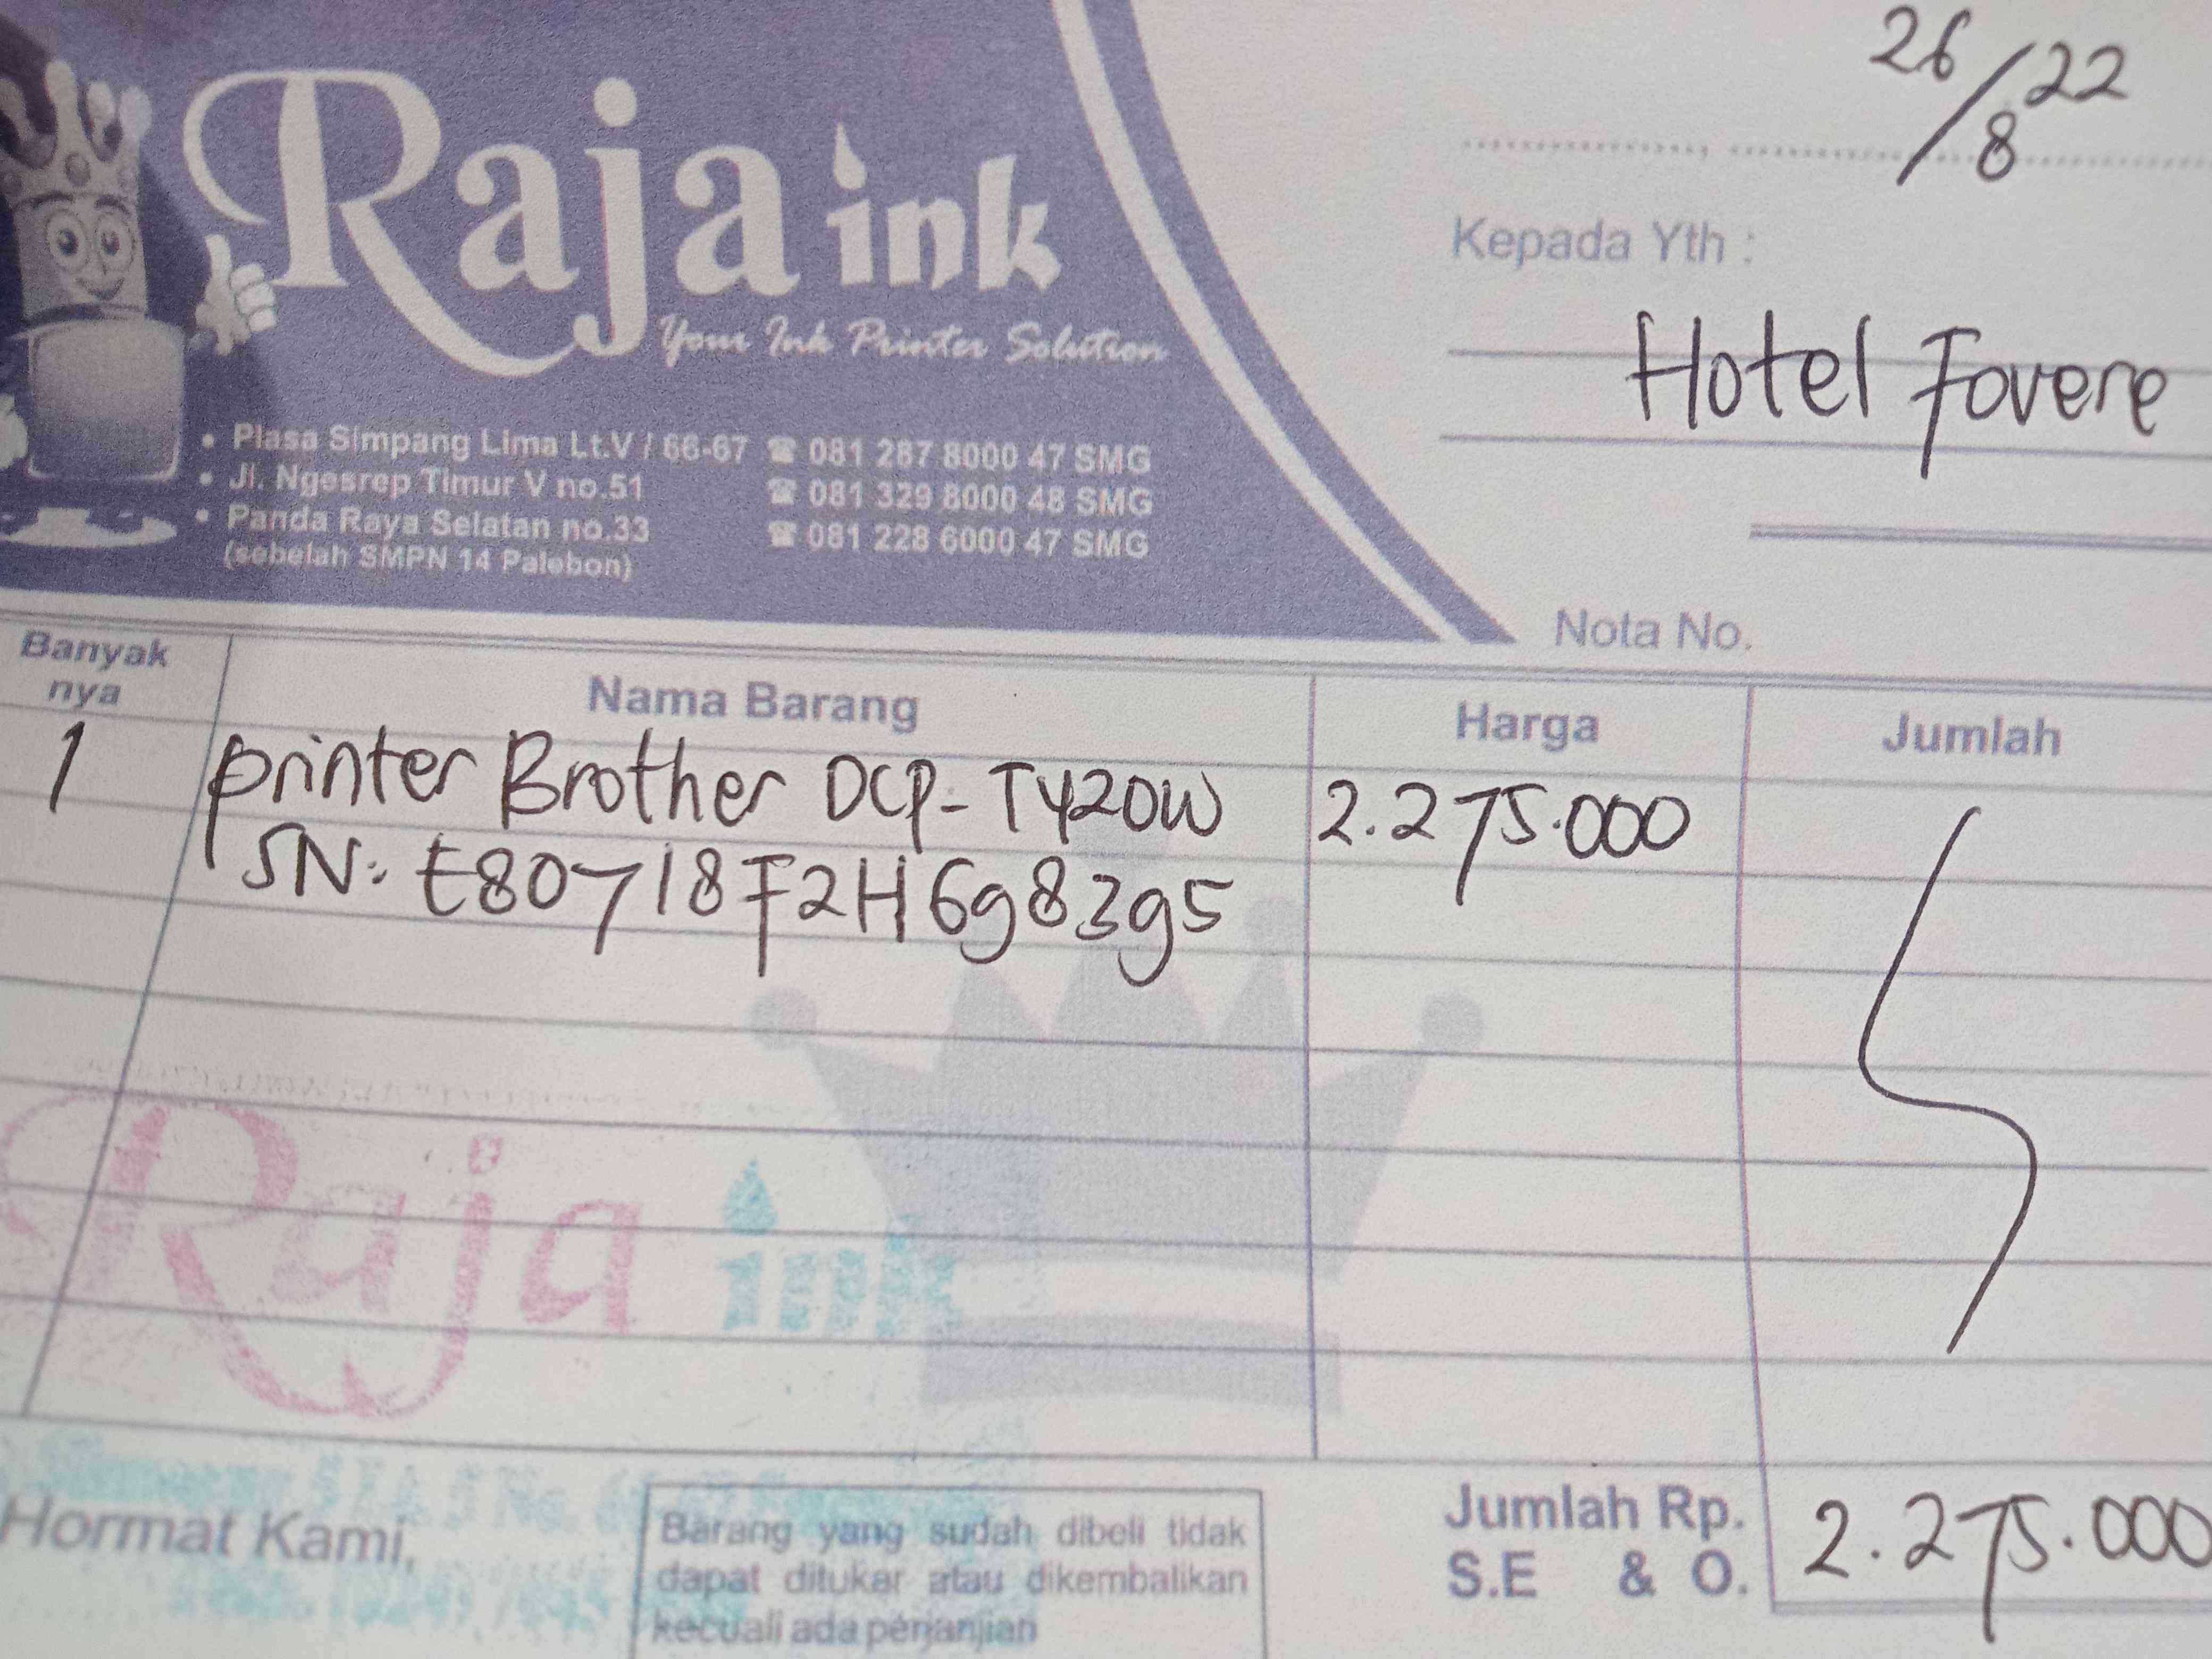 26/8 22
Raja ink
Your Ink Printer Solution
Kepada Yth :
Hotel Fovere
• Plasa Simpang Lima Lt.V / 66-67 ☎ 081 287 8000 47 SMG
• Jl. Ngesrep Timur V no.51 ☎ 081 329 8000 48 SMG
• Panda Raya Selatan no.33 ☎ 081 228 6000 47 SMG
(sebelah SMPN 14 Palebon)
Nota No.
Banyak nya Nama Barang Harga Jumlah
1 printer Brother DCP-T420W 2.275.000
SN: E80718F2H6g83g5
Raja ink
Hormat Kami,
Barang yang sudah dibeli tidak
dapat ditukar atau dikembalikan
kecuali ada perjanjian
Jumlah Rp. 2.275.000
S.E & O.